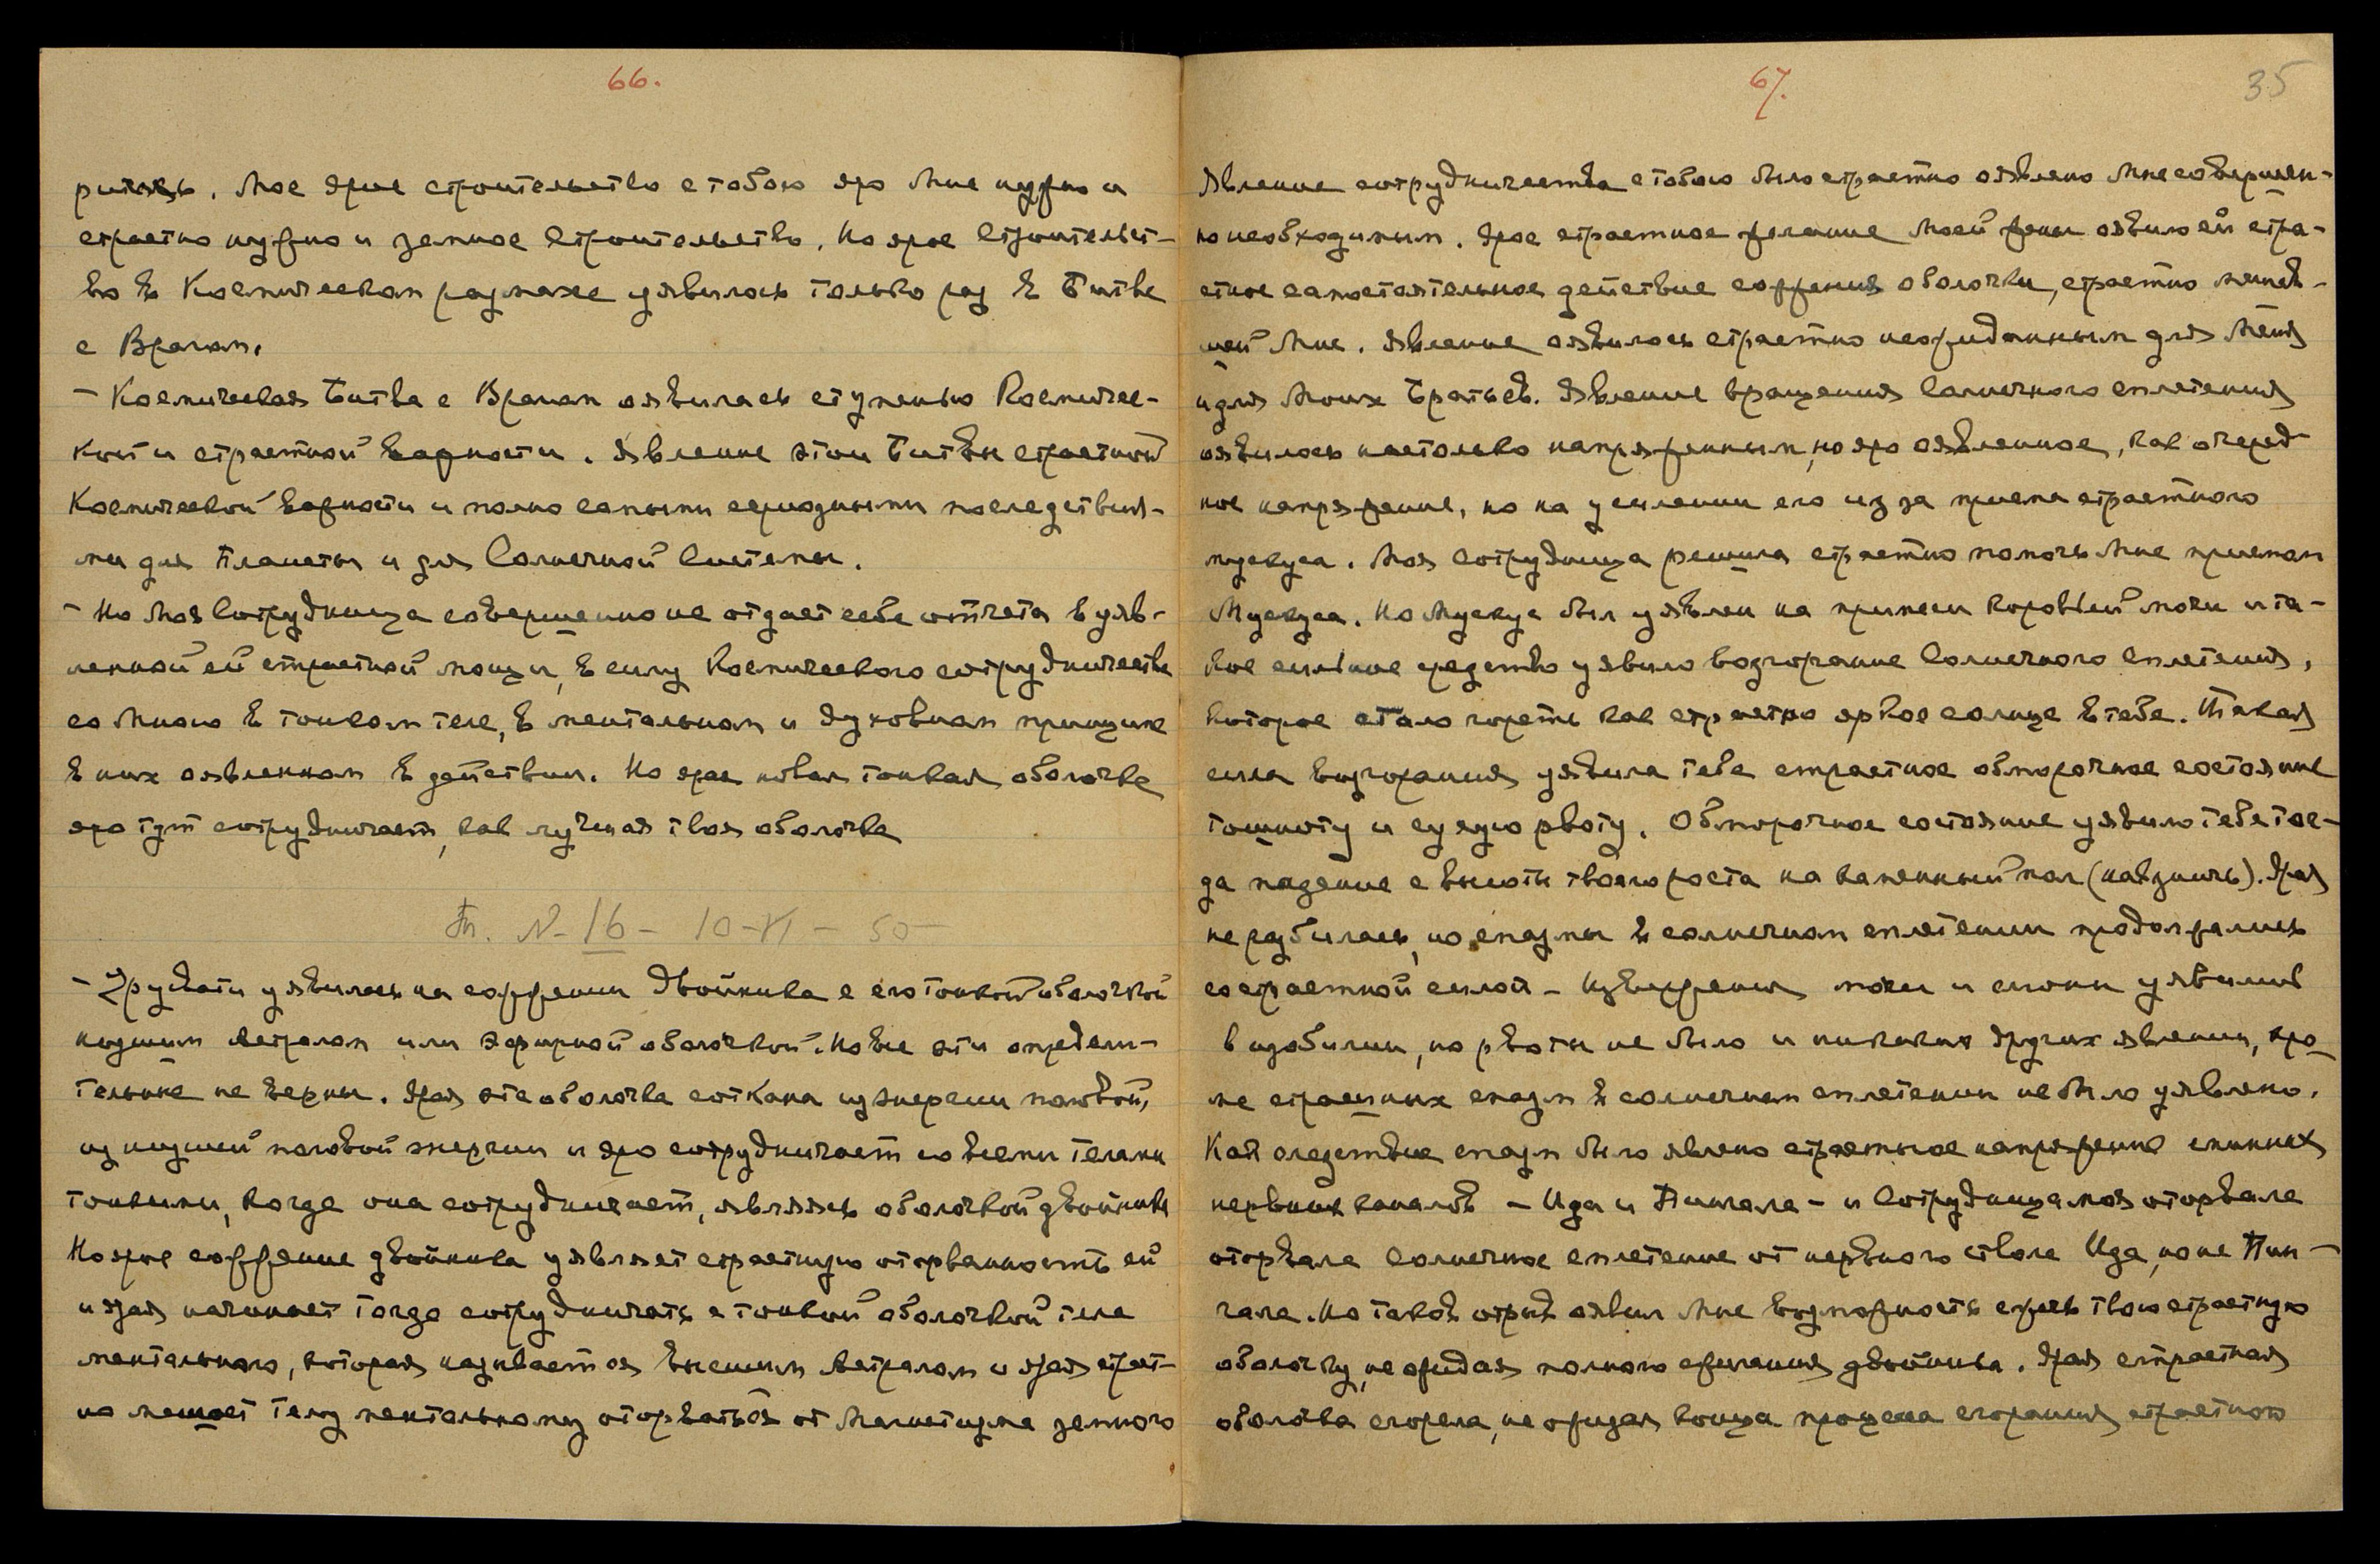 66.
ритясь. Мое ярое строительство с тобою яро Мне нужно и
страстно нужно и земное Строительство. Но ярое Строительст-
во в Космическом размахе уявилось только раз в Битве
с Врагом.
- Космическая Битва с Врагом оявилась ступенью Космичес-
кой и страстной важности. Явление этой Битвы страстной
Космической важности и полно самыми серьозными последствия-
ми для Планеты и для Солнечной Системы.
- Но Моя Сотрудница совершенно не отдает себе отчета в уяв-
ленной ей страстной мощи, в силу Космического сотрудничества
со Мною в тонком теле, в ментальном и духовном принципе
в них оявленном в действии. Но ярая новая тонкая оболочка
яро тут сотрудничает, как лучшая твоя оболочка
Т. N-16 - 10-VI - 50-
- Трудности уявились на сожжении двойника с его тонкой оболочкой
низшим астралом или эфирной оболочкой. Но все эти определи-
тельные не верны. Ярая эта оболочка соткана из энергии половой,
из низшей половой энергии и яро сотрудничает со всеми телами
тонкими, когда она сотрудничает, являясь оболочкой двойника
Но ярое сожжение двойника уявляет страстную оторванность ей
и ярая начинает тогда сотрудничать с тонкой оболочкой тела
ментального, которая называется высшим астралом и ярая страст-
но мешает телу ментальному оторваться от магнетизма земного
67.
35
Явление сотрудничества с тобою было страстно оявлено Мне совершен-
но необходимым. Ярое страстное желание Моей жены оявило ей стра-
стное самостоятельное действие сожжения оболочки, страстно мешав-
шей Мне. Явление оявилось страстно неожиданным для Меня
и для Моих Братьев. Явление вращения Солнечного сплетения
оявилось настолько напряженным, но яро оявленное, как очеред-
ное напряжение, но на усилении его из за приема страстного
мускуса. Моя Сотрудница решила страстно помочь Мне приемом
Мускуса. Но Мускус был уявлен на примеси коровьей мочи и та-
кое сильное средство уявило возгорание Солнечного Сплетения,
которое стало гореть как страстно яркое солнце в тебе. И такая
сила возгорания уявила тебе страстное обморочное состояние
тошноту и сухую рвоту. Обморочное состояние уявило тебе тог-
да падение с высоты твоего роста на каменный пол (навзничь). Ярая
не разбилась, но спазмы в солнечном сплетении продолжались
со страстной силой - Извержения мочи и слюны уявились
в изобилии, но рвоты не было и никаких других явлений, кро-
ме страшных спазм в солнечном сплетении не было уявлено.
Как следствие спазм было явлено страстное напряжение спинных
нервных каналов - Ида и Пингала - и Сотрудница моя оторвала
оторвала Солнечное сплетение от нервного ствола Ида, но не Пин-
гала. Но такой отрыв оявил Мне возможность сжечь твою страстную
оболочку, не ожидая полного сжигания двойника. Ярая страстная
оболочка сгорела, не ожидая конца процесса сгорания страстного